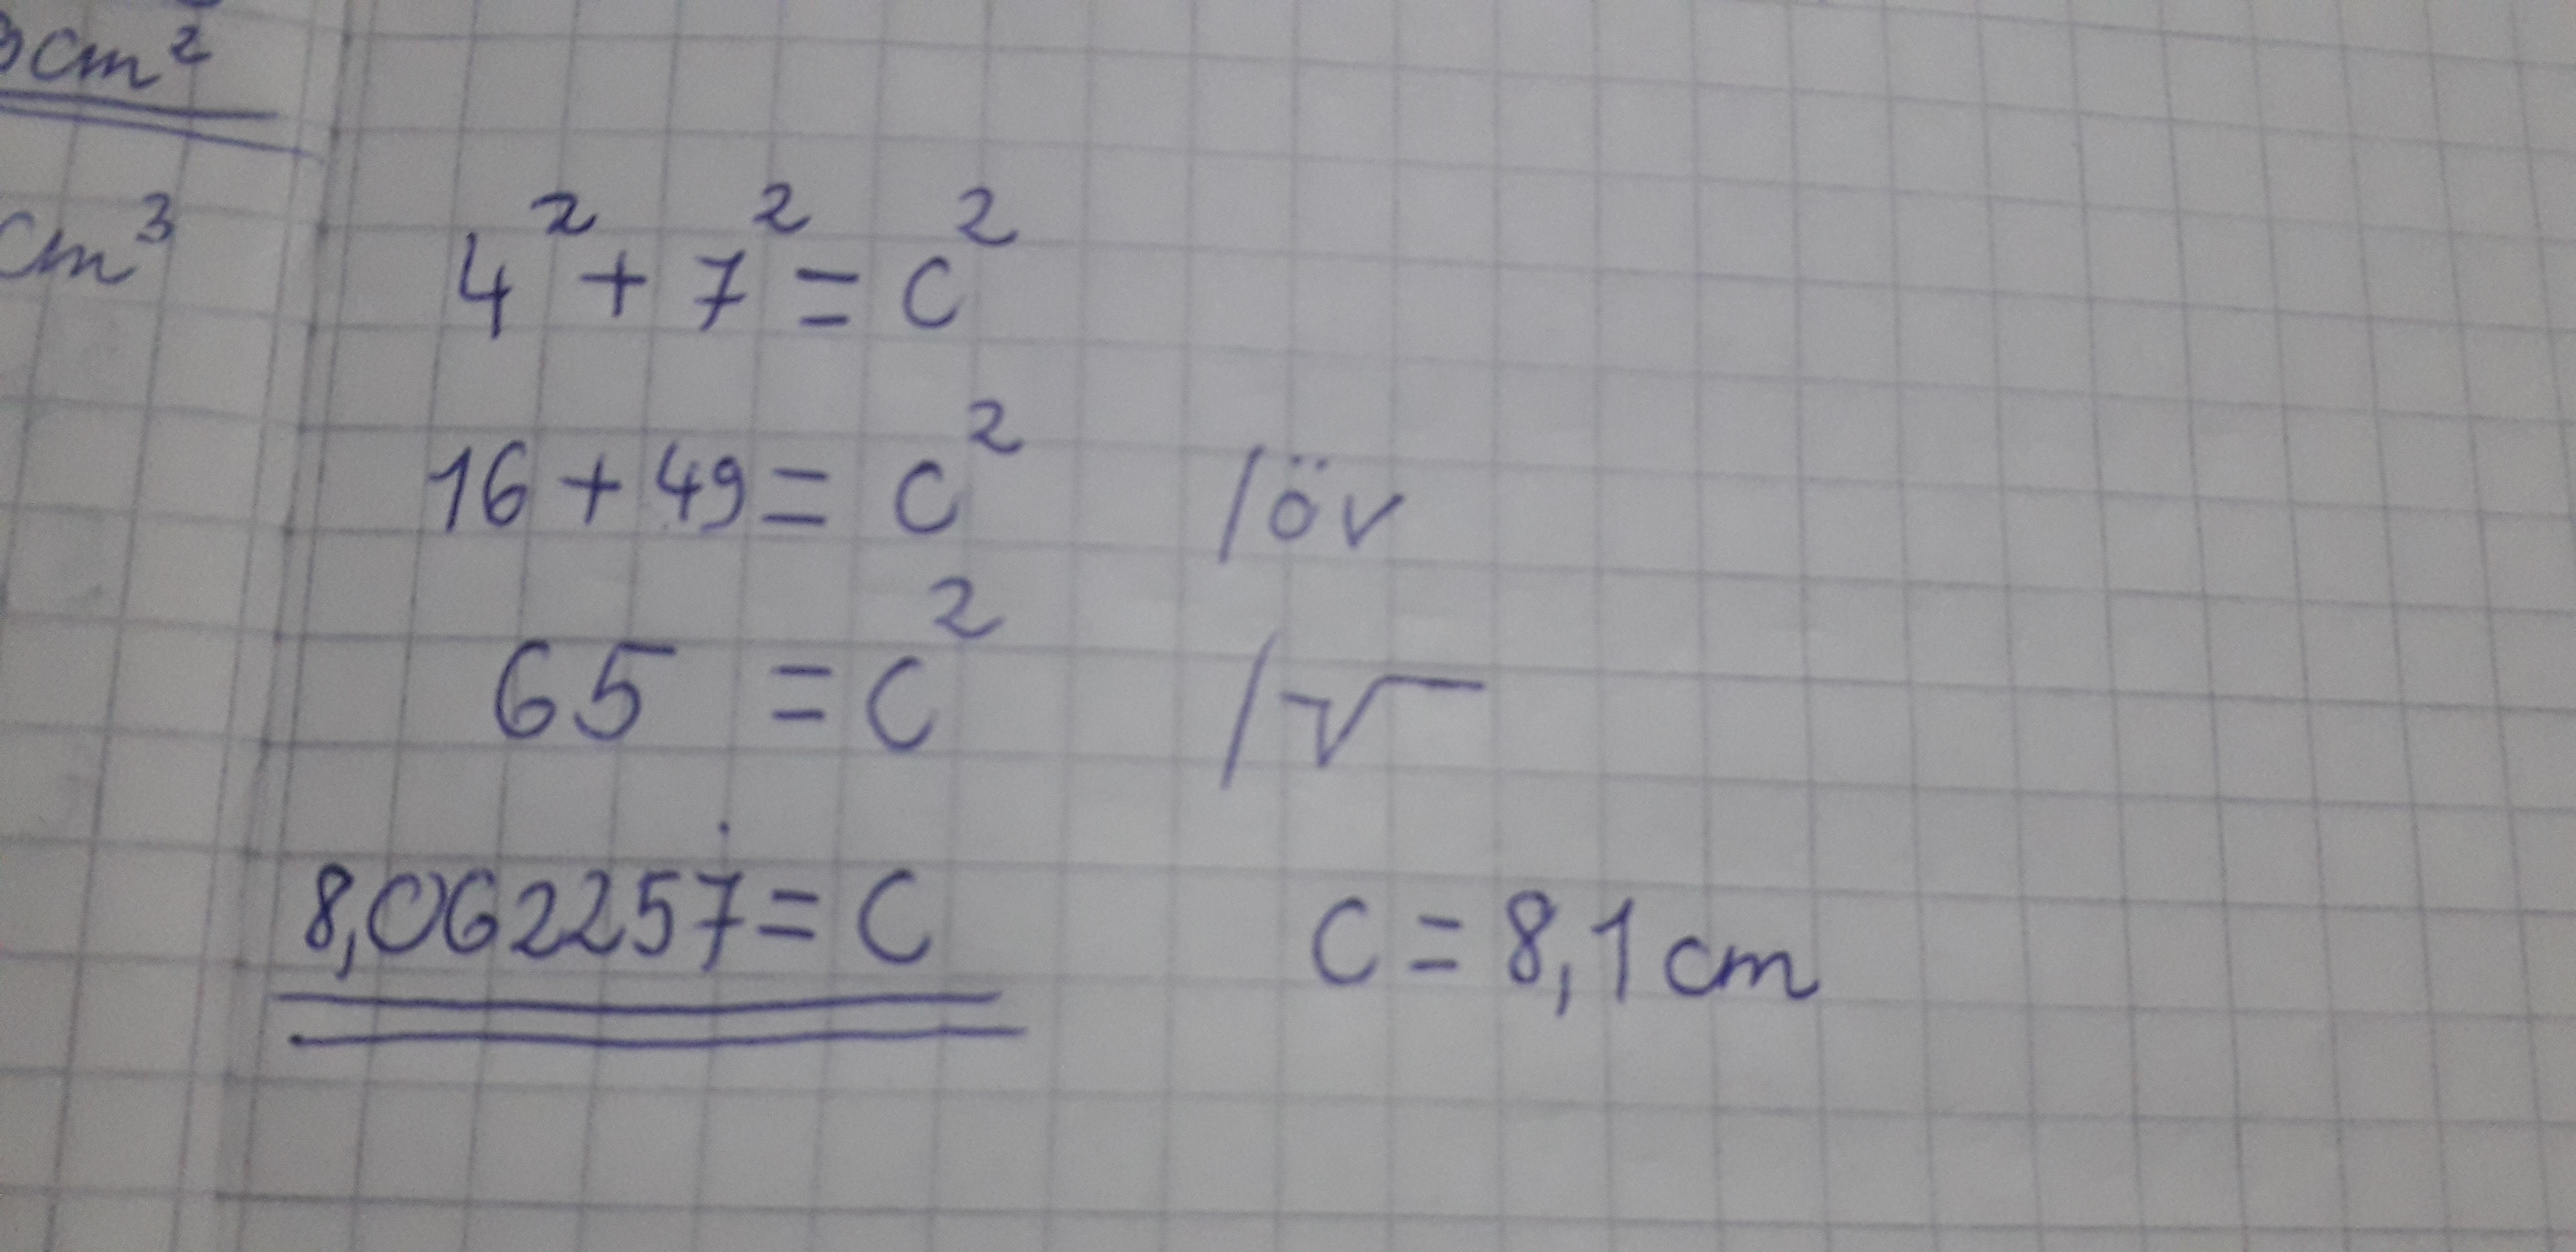 cm²
cm³
4² + 7² = c²
16 + 49 = c² /öv
65 = c² /√
8,062257 = c c = 8,1 cm